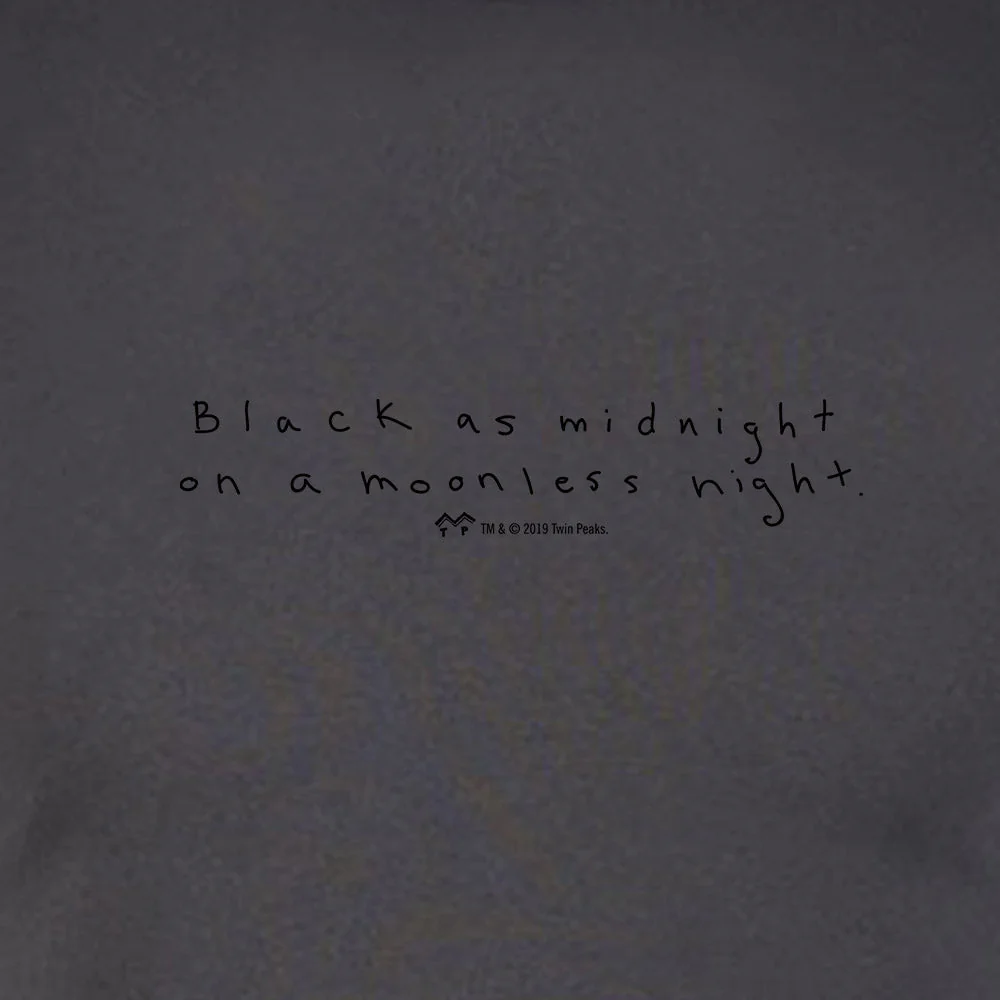 Black as midnight
on a moonless night.
TP TM & © 2019 Twin Peaks.